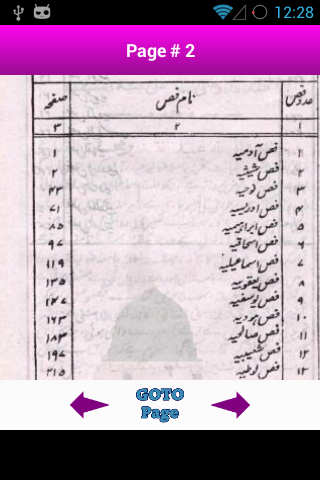 12:28
Page # 2
عدد فص نام فص صفحہ
۱ ۲ ۳
۱ فص آدمیہ ۱
۲ فص شیثیہ ۲
۳ فص نوحیہ ۴۳
۴ فص ادریسیہ ۷۱
۵ فص ابراہیمیہ ۸۵
۶ فص اسحاقیہ
۷ فص اسماعیلیہ ۱۱۹
۸ فص یعقوبیہ ۱۳۵
۹ فص یوسفیہ
۱۰ فص ہودیہ ۱۶۳
۱۱ فص صالحیہ ۱۸۳
۱۲ فص شعیبیہ ۱۹۷
۱۳ فص لوطیہ ۲۱۵
GOTO
Page